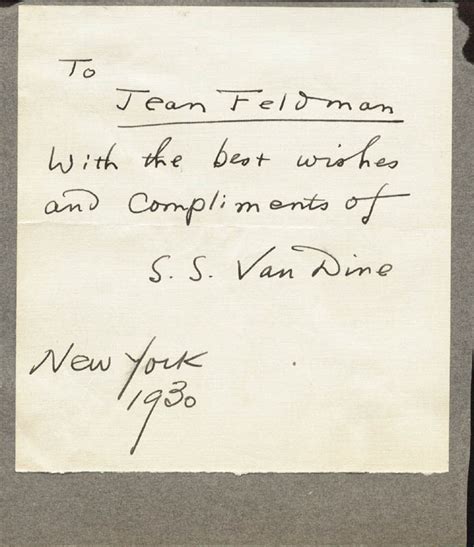 To
Jean Feldman
With the best wishes
and compliments of
S. S. Van Dine
New York
1930